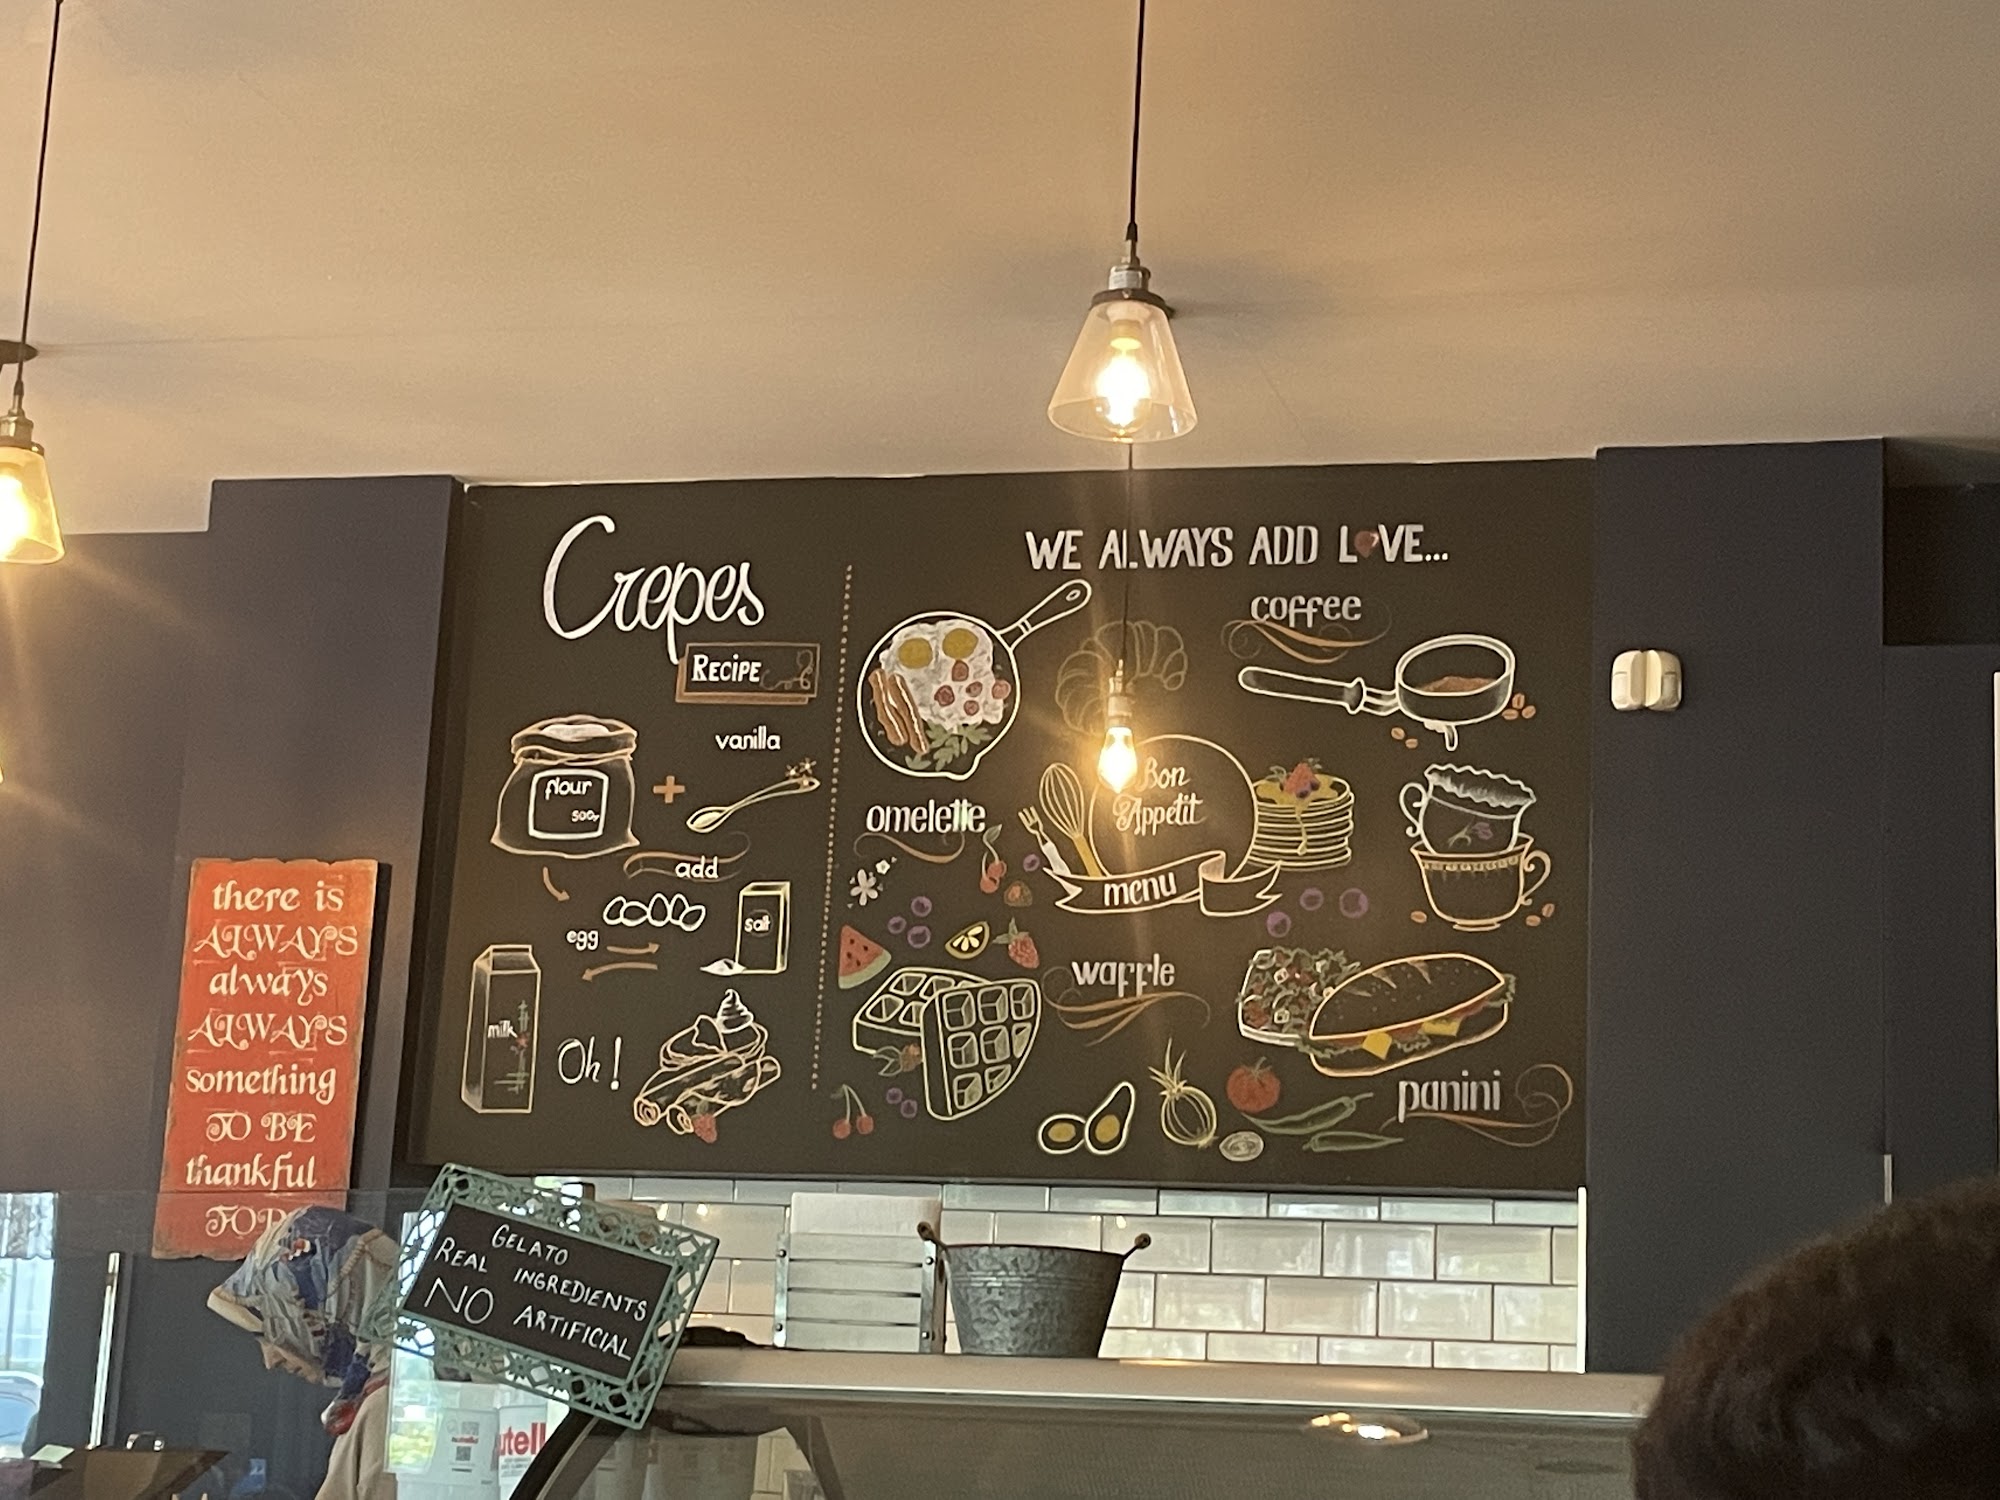 Crepes
RECIPE
vanilla
flour
500gr
add
egg
salt
milk
Oh!
WE ALWAYS ADD LOVE...
coffee
omelette
Bon
Appetit
menu
waffle
panini
there is
ALWAYS
always
ALWAYS
something
TO BE
thankful
FOR
GELATO
REAL INGREDIENTS
NO ARTIFICIAL
utell